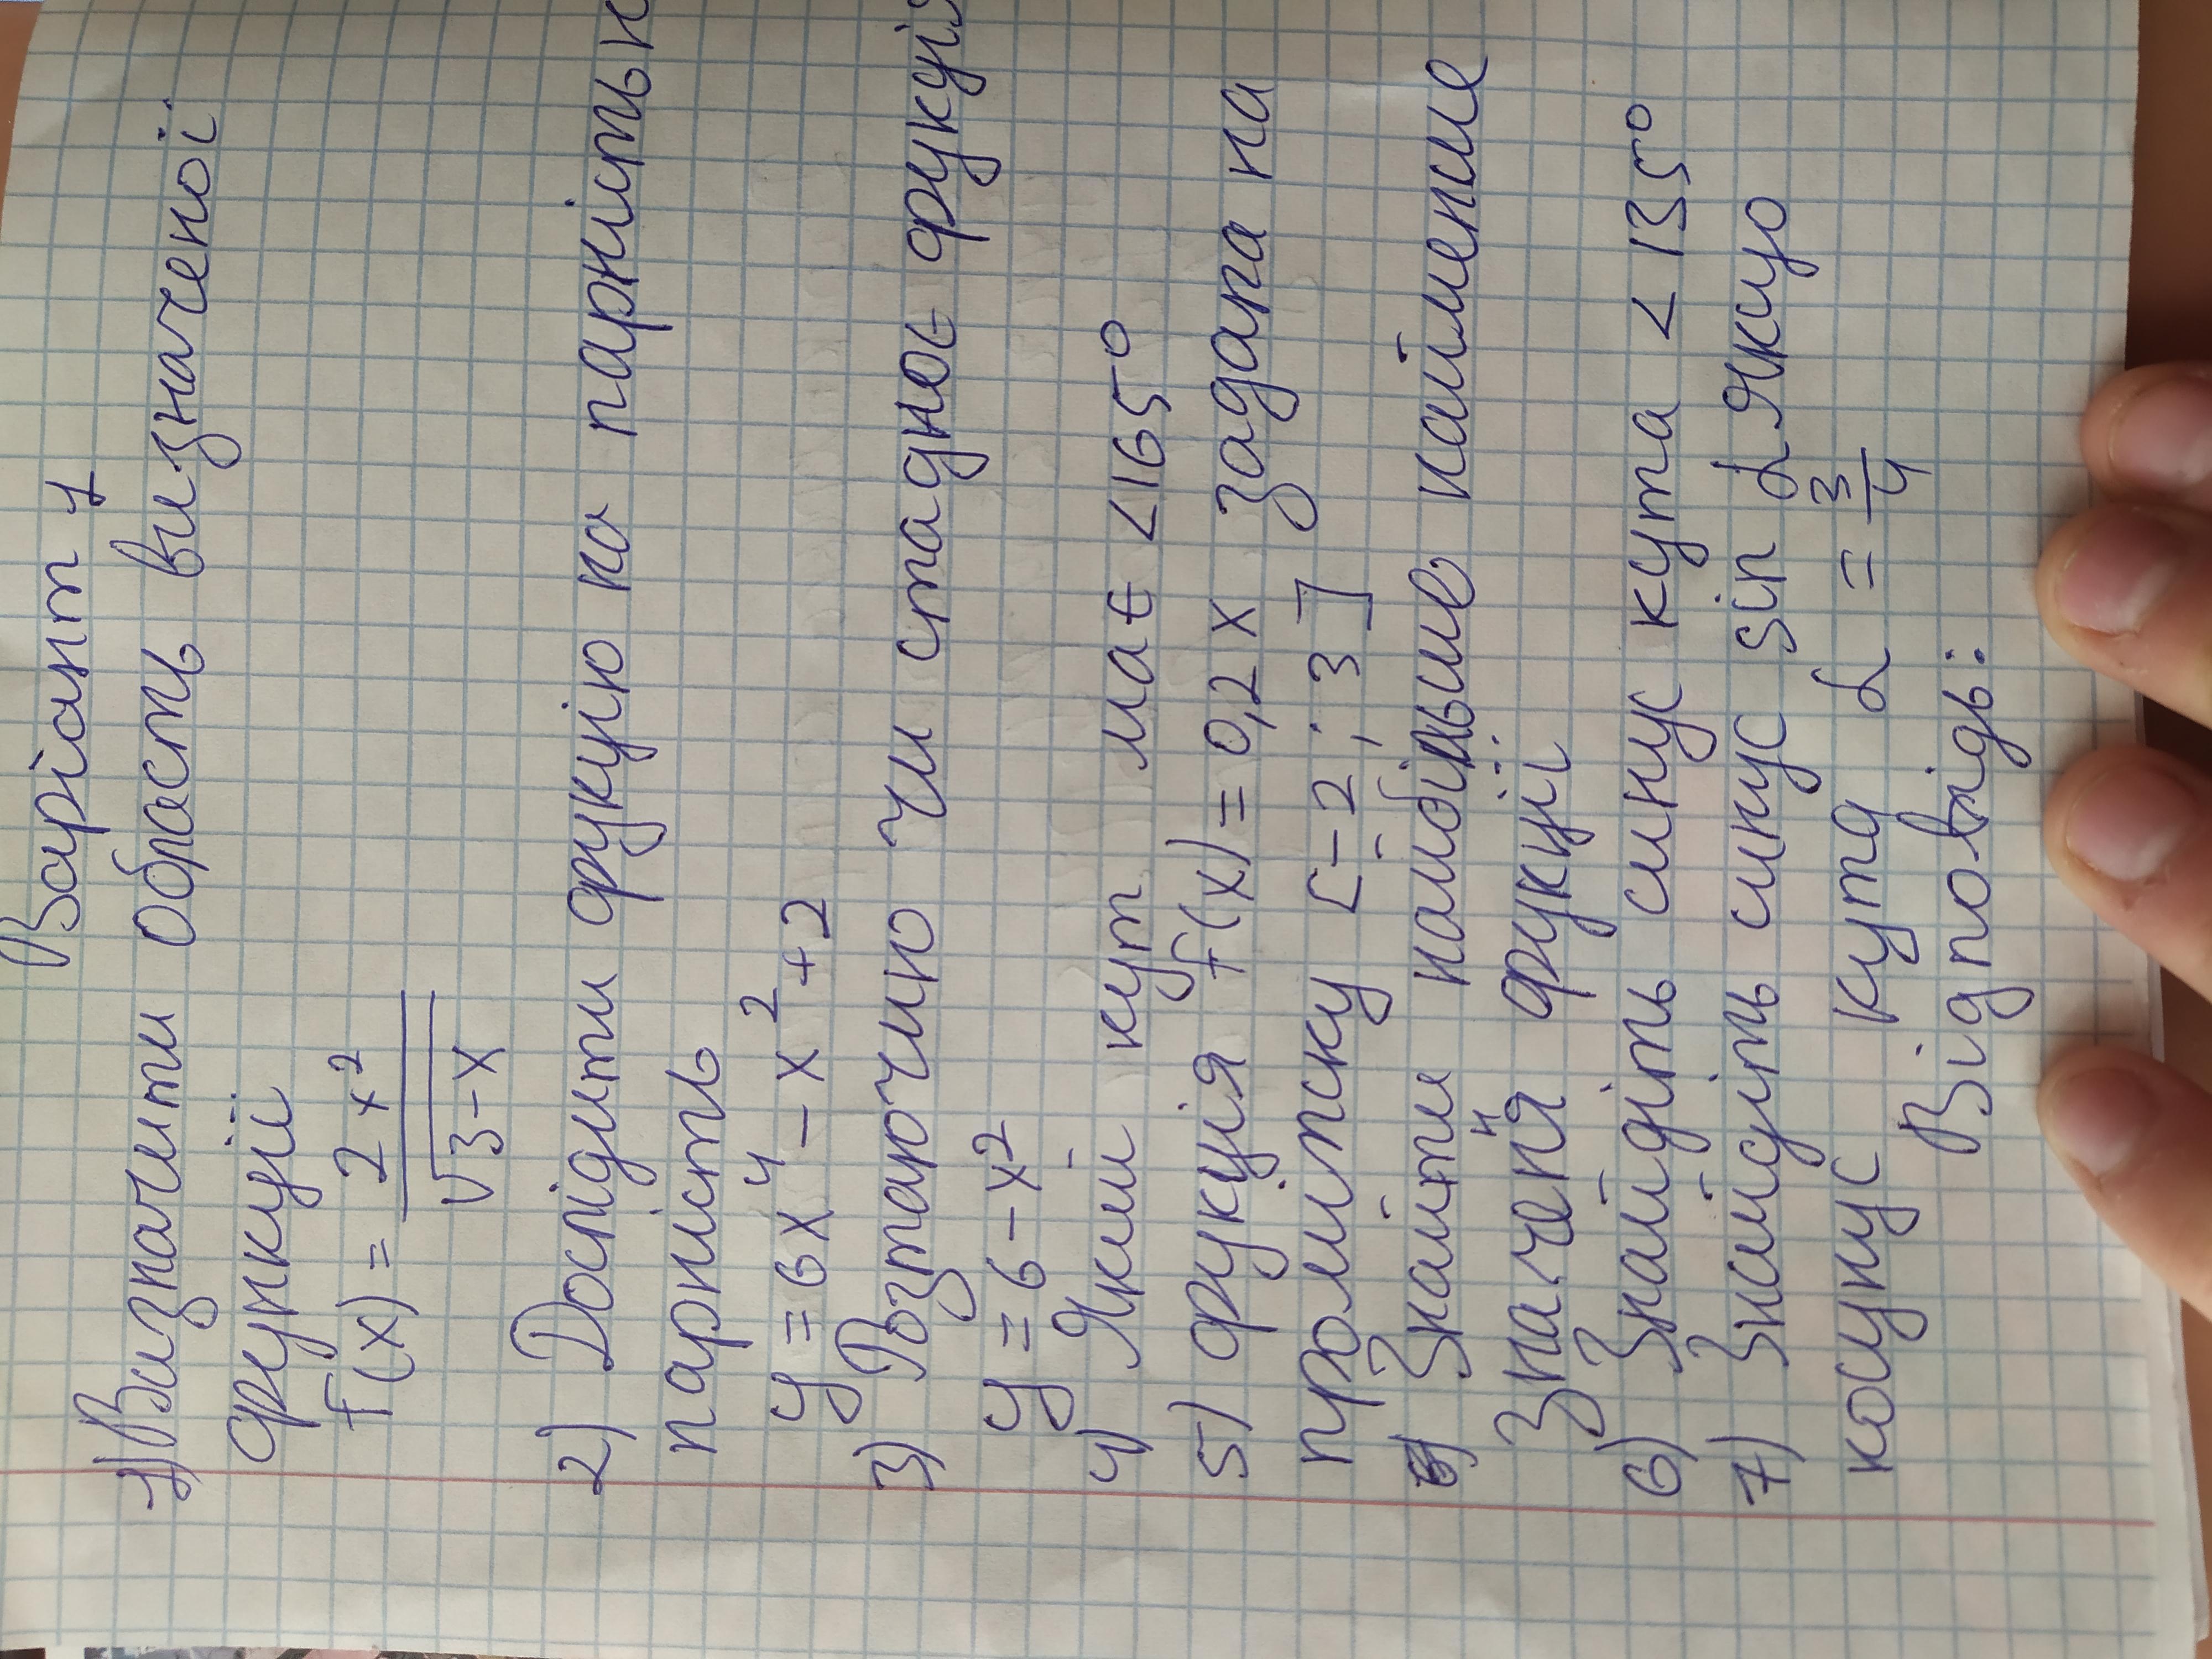 Варіант 1
1) Визначити область визначеної
функції
f(x) = 2x² / √3-x
2) Дослідити функцію на парність н
парність
y = 6x⁴ - x² + 2
3) Розтаючию чи спадною функція
y = 6 - x²
4) Який кут має <165°
5) функція f(x) = 0,2x задана на
проміжку [-2; 3]
Знайти найбільше найменше
значення функції
6) Знайдіть синус кута < 135°
7) Знайдіть синус sin α якщо
косинус кута α = 3/4
Відповідь: